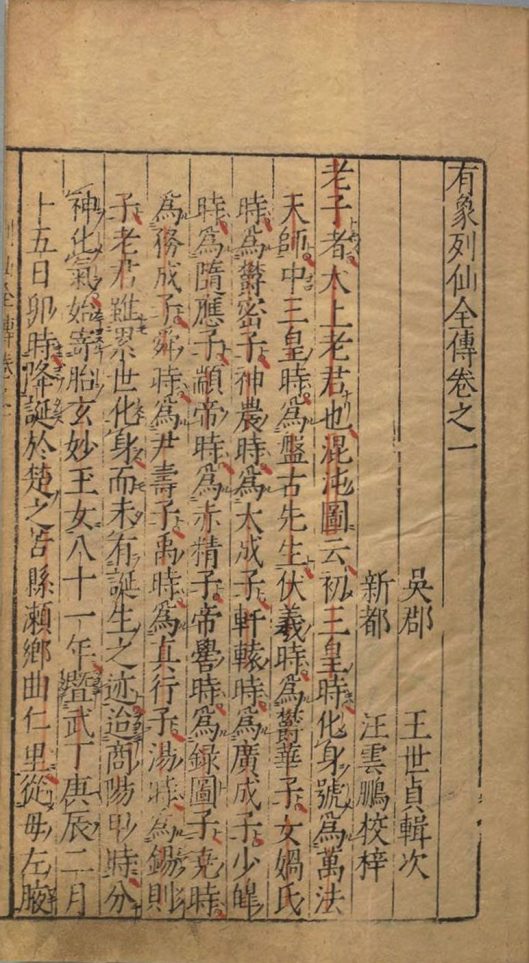 有象列仙全傳卷之一
吳郡 王世貞輯次
新都 汪雲鵬校梓
老子者太上老君也混沌圖云初三皇時化身號爲萬法
天師中三皇時爲盤古先生伏羲時爲欝華子女媧氏
時爲欝密子神農時爲太成子軒轅時爲廣成子少皥
時爲隨應子顓帝時爲赤精子帝嚳時爲録圖子尭時
爲務成子舜時爲尹壽子禹時爲真行子湯時爲錫則
子老君雖累世化身而未有誕生之迹迨商陽甲時分
神化氣始寄胎玄妙王女八十一年曁武丁庚辰二月
十五日卯時降誕於楚之苦縣瀬鄉曲仁里從母左腋